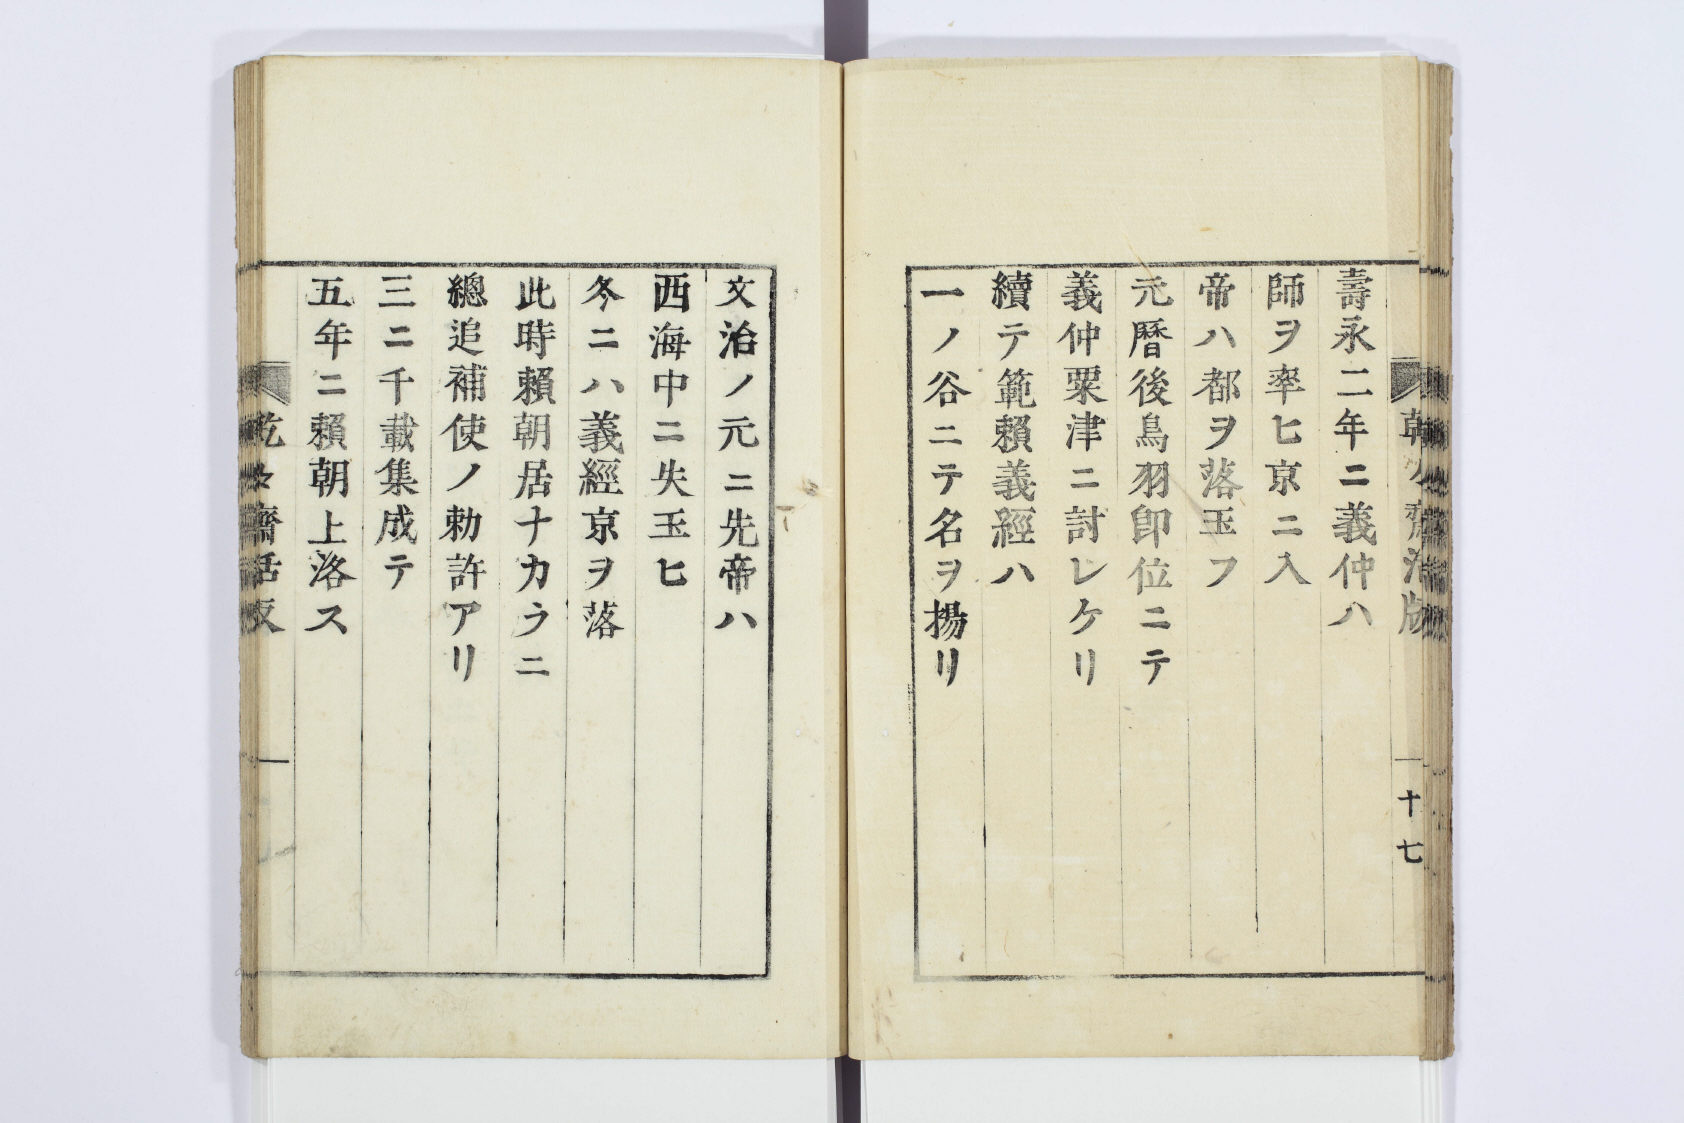 壽永二年ニ義仲ハ
師ヲ率ヒ京ニ入
帝ハ都ヲ落玉フ
元曆後鳥羽卽位ニテ
義仲粟津ニ討レケリ
續テ範賴義經ハ
一ノ谷ニテ名ヲ揚リ
十七
文治ノ元ニ先帝ハ
西海中ニ失玉ヒ
冬ニハ義經京ヲ落
此時賴朝居ナカラニ
總追補使ノ勅許アリ
三ニ千載集成テ
五年ニ賴朝上洛ス